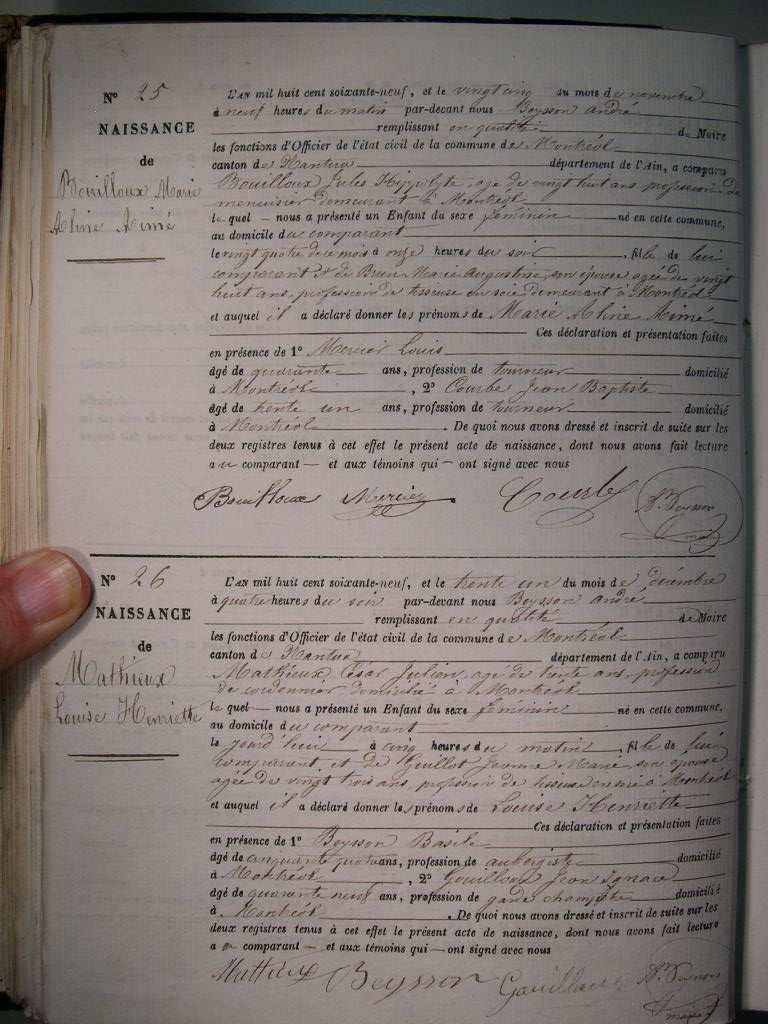 N° 25
NAISSANCE
de
Bouilloux Marie
Aline Aimé
L'AN mil huit cent soixante-neuf, et le vingt cinq du mois de novembre
à neuf heures du matin par-devant nous Beysson André
remplissant en qualité de Maire
les fonctions d'Officier de l'état civil de la commune de Montréal
canton de Nantua département de l'Ain, a comparu
Bouilloux Jules Hyppolyte, age de vingt huit ans, profession de
menuisier demeurant à Montréal
le quel – nous a présenté un Enfant du sexe féminin né en cette commune,
au domicile du comparant
le vingt quatre de ce mois à onze heures du soir, fille de lui
comparant & de Brun Marie Augustine, son épouse agée de vingt
huit ans, profession de tisseuse en soie demeurant à Montréal
et auquel il a déclaré donner les prénoms de Marie Aline Aimé
Ces déclaration et présentation faites
en présence de 1° Mercier Louis
âgé de quarante ans, profession de tourneur domicilié
à Montréal, 2° Courbe Jean Baptiste
âgé de trente un ans, profession de tourneur domicilié
à Montréal. De quoi nous avons dressé et inscrit de suite sur les
deux registres tenus à cet effet le présent acte de naissance, dont nous avons fait lecture
au comparant – et aux témoins qui – ont signé avec nous
Bouilloux Mercier Courbe A. Beysson
maire
N° 26
NAISSANCE
de
Mathieux
Louise Henriette
L'AN mil huit cent soixante-neuf, et le trente un du mois de décembre
à quatre heures du soir par-devant nous Beysson André
remplissant en qualité de Maire
les fonctions d'Officier de l'état civil de la commune de Montréal
canton de Nantua département de l'Ain, a comparu
Mathieux César Julien, agé de trente ans, profession
de cordonnier domicilié à Montréal
le quel – nous a présenté un Enfant du sexe féminin né en cette commune,
au domicile du comparant
le jourd'hui à cinq heures du matin, fille de lui
comparant, et de Guillot Jeanne Marie, son épouse
agée de vingt trois ans, profession de tisseuse en soie à Montréal
et auquel il a déclaré donner les prénoms de Louise Henriette
Ces déclaration et présentation faites
en présence de 1° Beysson Basile
âgé de cinquante quatre ans, profession de aubergiste domicilié
à Montréal, 2° Gouilloux Jean Ignace
âgé de quarante neuf ans, profession de garde champêtre domicilié
à Montréal. De quoi nous avons dressé et inscrit de suite sur les
deux registres tenus à cet effet le présent acte de naissance, dont nous avons fait lecture
au comparant – et aux témoins qui – ont signé avec nous
Mathieux Beysson Gouilloux A. Beysson
maire